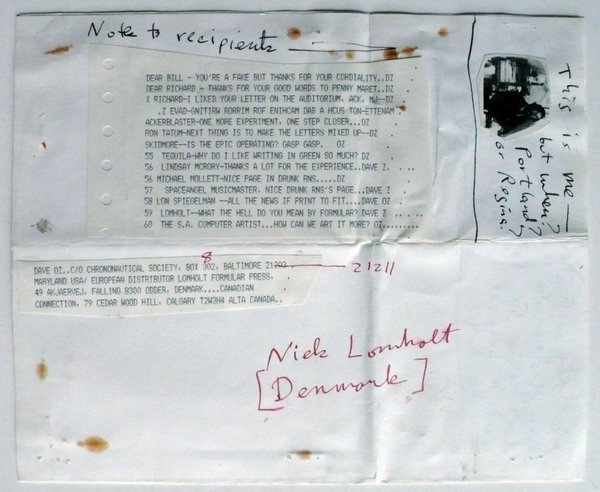 Note to recipients
DEAR BILL - YOU'RE A FAKE BUT THANKS FOR YOUR CORDIALITY..DZ
DEAR RICHARD - THANKS FOR YOUR GOOD WORDS TO PENNY MARET..DZ
X RICHARD-I LIKED YOUR LETTER ON THE AUDITORIUM, ACK,
.2 EVAD-GNITIRW RORRIM ROF ENIHCAM DAB A HCUS TON-ETTENAM
ACKERBLASTER-ONE MORE EXPERIMENT, ONE STEP CLOSER...DZ
RON TATUM-NEXT THING IS TO MAKE THE LETTERS MIXED UP--DZ
SKIDMORE--IS THE EPIC OPERATING? GASP GASP. DZ
55 TEQUILA-WHY DO I LIKE WRITING IN GREEN SO MUCH? DZ
56 LINDSAY MCRORY-THANKS A LOT FOR THE EXPERIENCE..DAVE Z.
56 MICHAEL MOLLETT-NICE PAGE IN DRUNK RNS.....DZ
57 SPACEANGEL MUSICMASTER. NICE DRUNK RNS'S PAGE...DAVE Z
58 LON SPIEGELMAN --ALL THE NEWS IF PRINT TO FIT....DAVE OZ
59 LOMHOLT--WHAT THE HELL DO YOU MEAN BY FORMULAR? DAVE Z
60 THE S.A. COMPUTER ARTIST...HOW CAN WE ART IT MORE? OZ.........
This is me—
but when?
Portland?
or Regina?
8
DAVE OZ..C/O CHRONONAUTICAL SOCIETY, BOX 302, BALTIMORE 21202 21211
MARYLAND USA/ EUROPEAN DISTRIBUTOR LOMHOLT FORMULAR PRESS,
49 AKJAERVEJ, FALLING 8300 ODDER, DENMARK....CANADIAN
CONNECTION, 79 CEDAR WOOD HILL, CALGARY T2W3H4 ALTA CANADA..
Nick Lomholt
[Denmark]